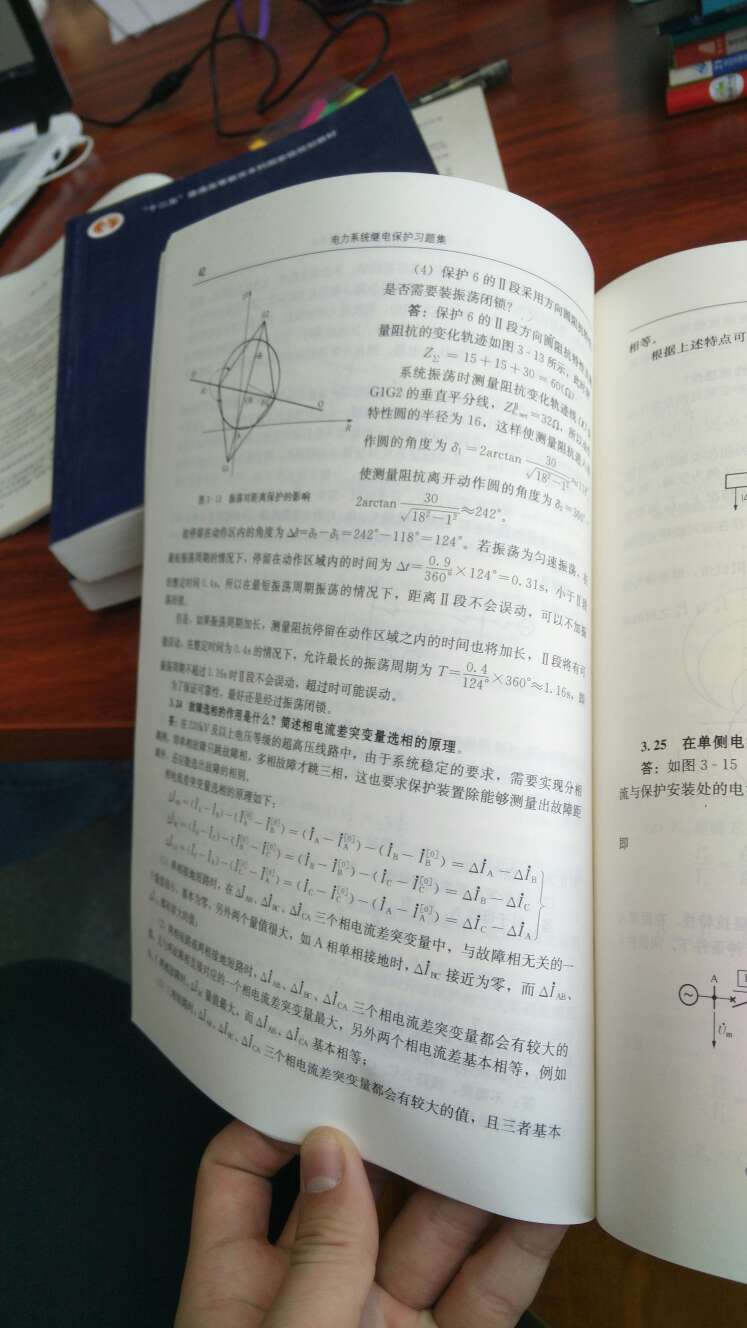 "十二五"普通高等教育本科国家级规划教材
42
电力系统继电保护习题集
(4) 保护 6 的Ⅱ段采用方向圆阻抗
是否需要装振荡闭锁?
答: 保护 6 的Ⅱ段方向圆阻抗特性
量阻抗的变化轨迹如图 3-13 所示, 此时
Z_Σ = 15+15+30=60(Ω)
系统振荡时测量阻抗变化轨迹
G1G2 的垂直平分线, =32Ω, 所以
特性圆的半径为 16, 这样使测量阻抗进入
作圆的角度为 δ₁=2arctan 30/√(18²-1²)≈118°
使测量阻抗离开动作圆的角度为 δ₂=360°-
2arctan 30/√(18²-1²)≈242°。
图 3-13 振荡对距离保护的影响
故停留在动作区内的角度为 Δδ=δ₂-δ₁=242°-118°=124°。若振荡为匀速振荡, 在
最短振荡周期的情况下, 停留在动作区域内的时间为 Δt=0.9/360°×124°=0.31s, 小于Ⅱ段
的整定时间 0.4s, 所以在最短振荡周期振荡的情况下, 距离Ⅱ段不会误动, 可以不加振
荡闭锁。
但是, 如果振荡周期加长, 测量阻抗停留在动作区域之内的时间也将加长, Ⅱ段将有可
能误动, 在整定时间为 0.4s 的情况下, 允许最长的振荡周期为 T=0.4/124°×360°≈1.16s, 即
振荡周期不超过 1.16s 时Ⅱ段不会误动, 超过时可能误动。
为了保证可靠性, 最好还是经过振荡闭锁。
3.24 故障选相的作用是什么? 简述相电流差突变量选相的原理。
答: 在 220kV 及以上电压等级的超高压线路中, 由于系统稳定的要求, 需要实现分相
跳闸, 即单相故障只跳故障相, 多相故障才跳三相, 这也要求保护装置除能够测量出故障距
离外, 还应能选出故障的相别。
相电流差突变量选相的原理如下:
Δİ_AB=(İ_A-İ_B)-(İ_A^[0]-İ_B^[0])=(İ_A-İ_A^[0])-(İ_B-İ_B^[0])=Δİ_A-Δİ_B
Δİ_BC=(İ_B-İ_C)-(İ_B^[0]-İ_C^[0])=(İ_B-İ_B^[0])-(İ_C-İ_C^[0])=Δİ_B-Δİ_C
Δİ_CA=(İ_C-İ_A)-(İ_C^[0]-İ_A^[0])=(İ_C-İ_C^[0])-(İ_A-İ_A^[0])=Δİ_C-Δİ_A
(1) 单相接地短路时, 在 Δİ_AB、Δİ_BC、Δİ_CA 三个相电流差突变量中, 与故障相无关的一
个量值很小, 基本为零, 另外两个量值很大, 如 A 相单相接地时, Δİ_BC 接近为零, 而 Δİ_AB、
有较大的值;
(2) 两相短路或两相接地短路时, Δİ_AB、Δİ_BC、Δİ_CA 三个相电流差突变量都会有较大的
值, 且与两故障相直接对应的一个相电流差突变量最大, 另外两个相电流差基本相等, 例如
Δİ_BC 量值最大, 而 Δİ_AB、Δİ_CA 基本相等;
(3) 三相短路时, Δİ_AB、Δİ_BC、Δİ_CA 三个相电流差突变量都会有较大的值, 且三者基本
相等。
根据上述特点可
3.25 在单侧电
答: 如图 3-15
流与保护安装处的电
即
A
U̇_m